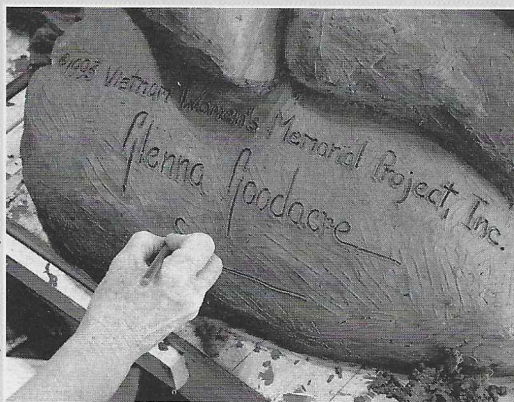 ©1993 Vietnam Women's Memorial Project, Inc.
Glenna Goodacre